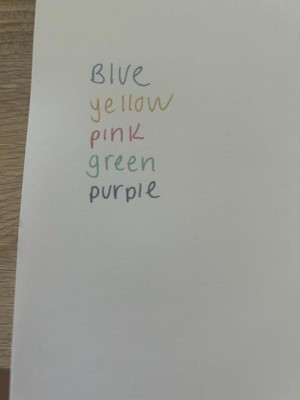 Blue
yellow
pink
green
purple